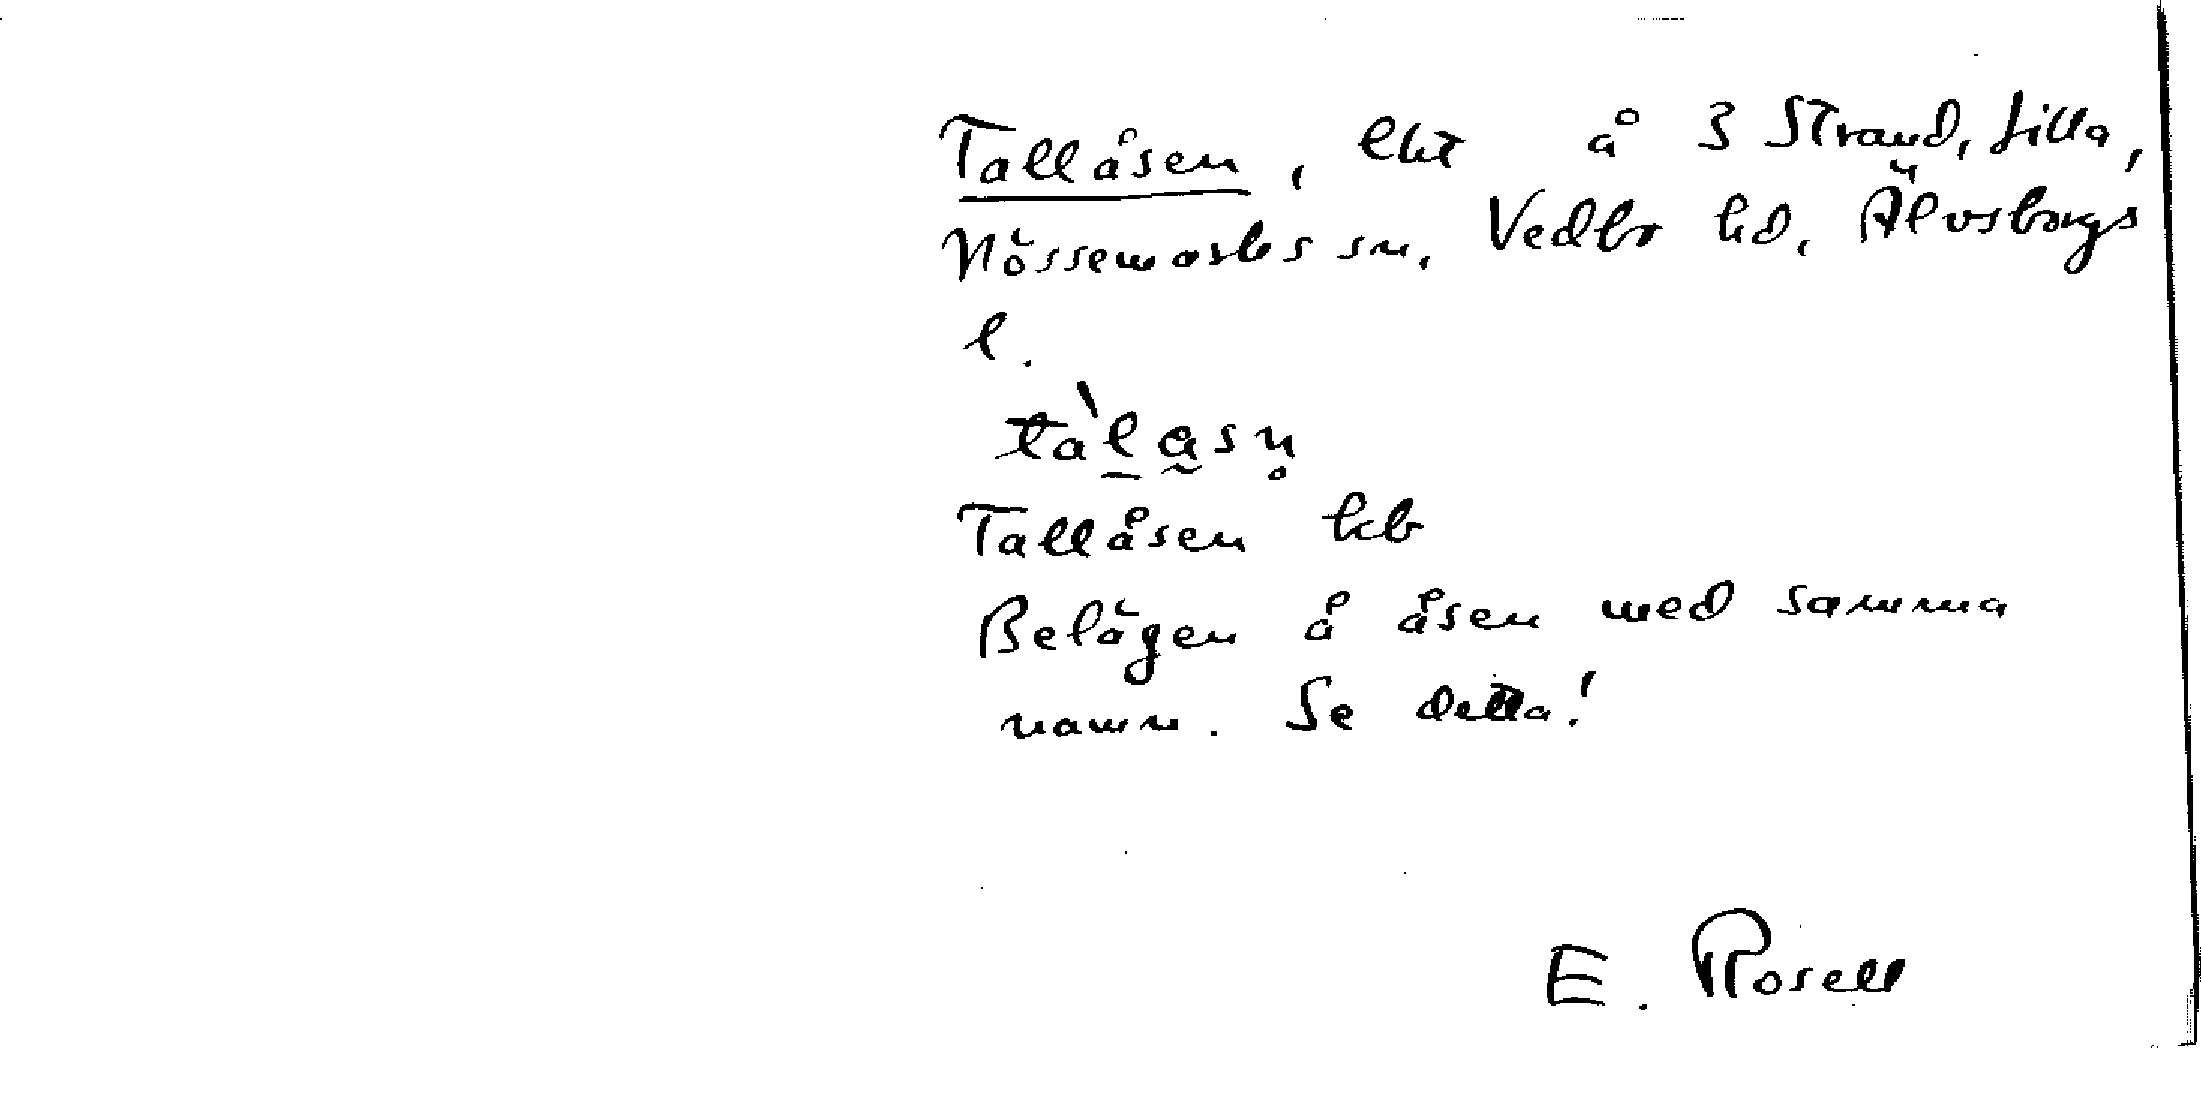 Tallåsen, lht å 3 Strand, lilla,
Nössemarks sn, Vedbo hd, Älvsborgs
l.
tàlåsn̥
Tallåsen hb
Belägen å åsen med samma
namn. Se detta!
E. Rosell